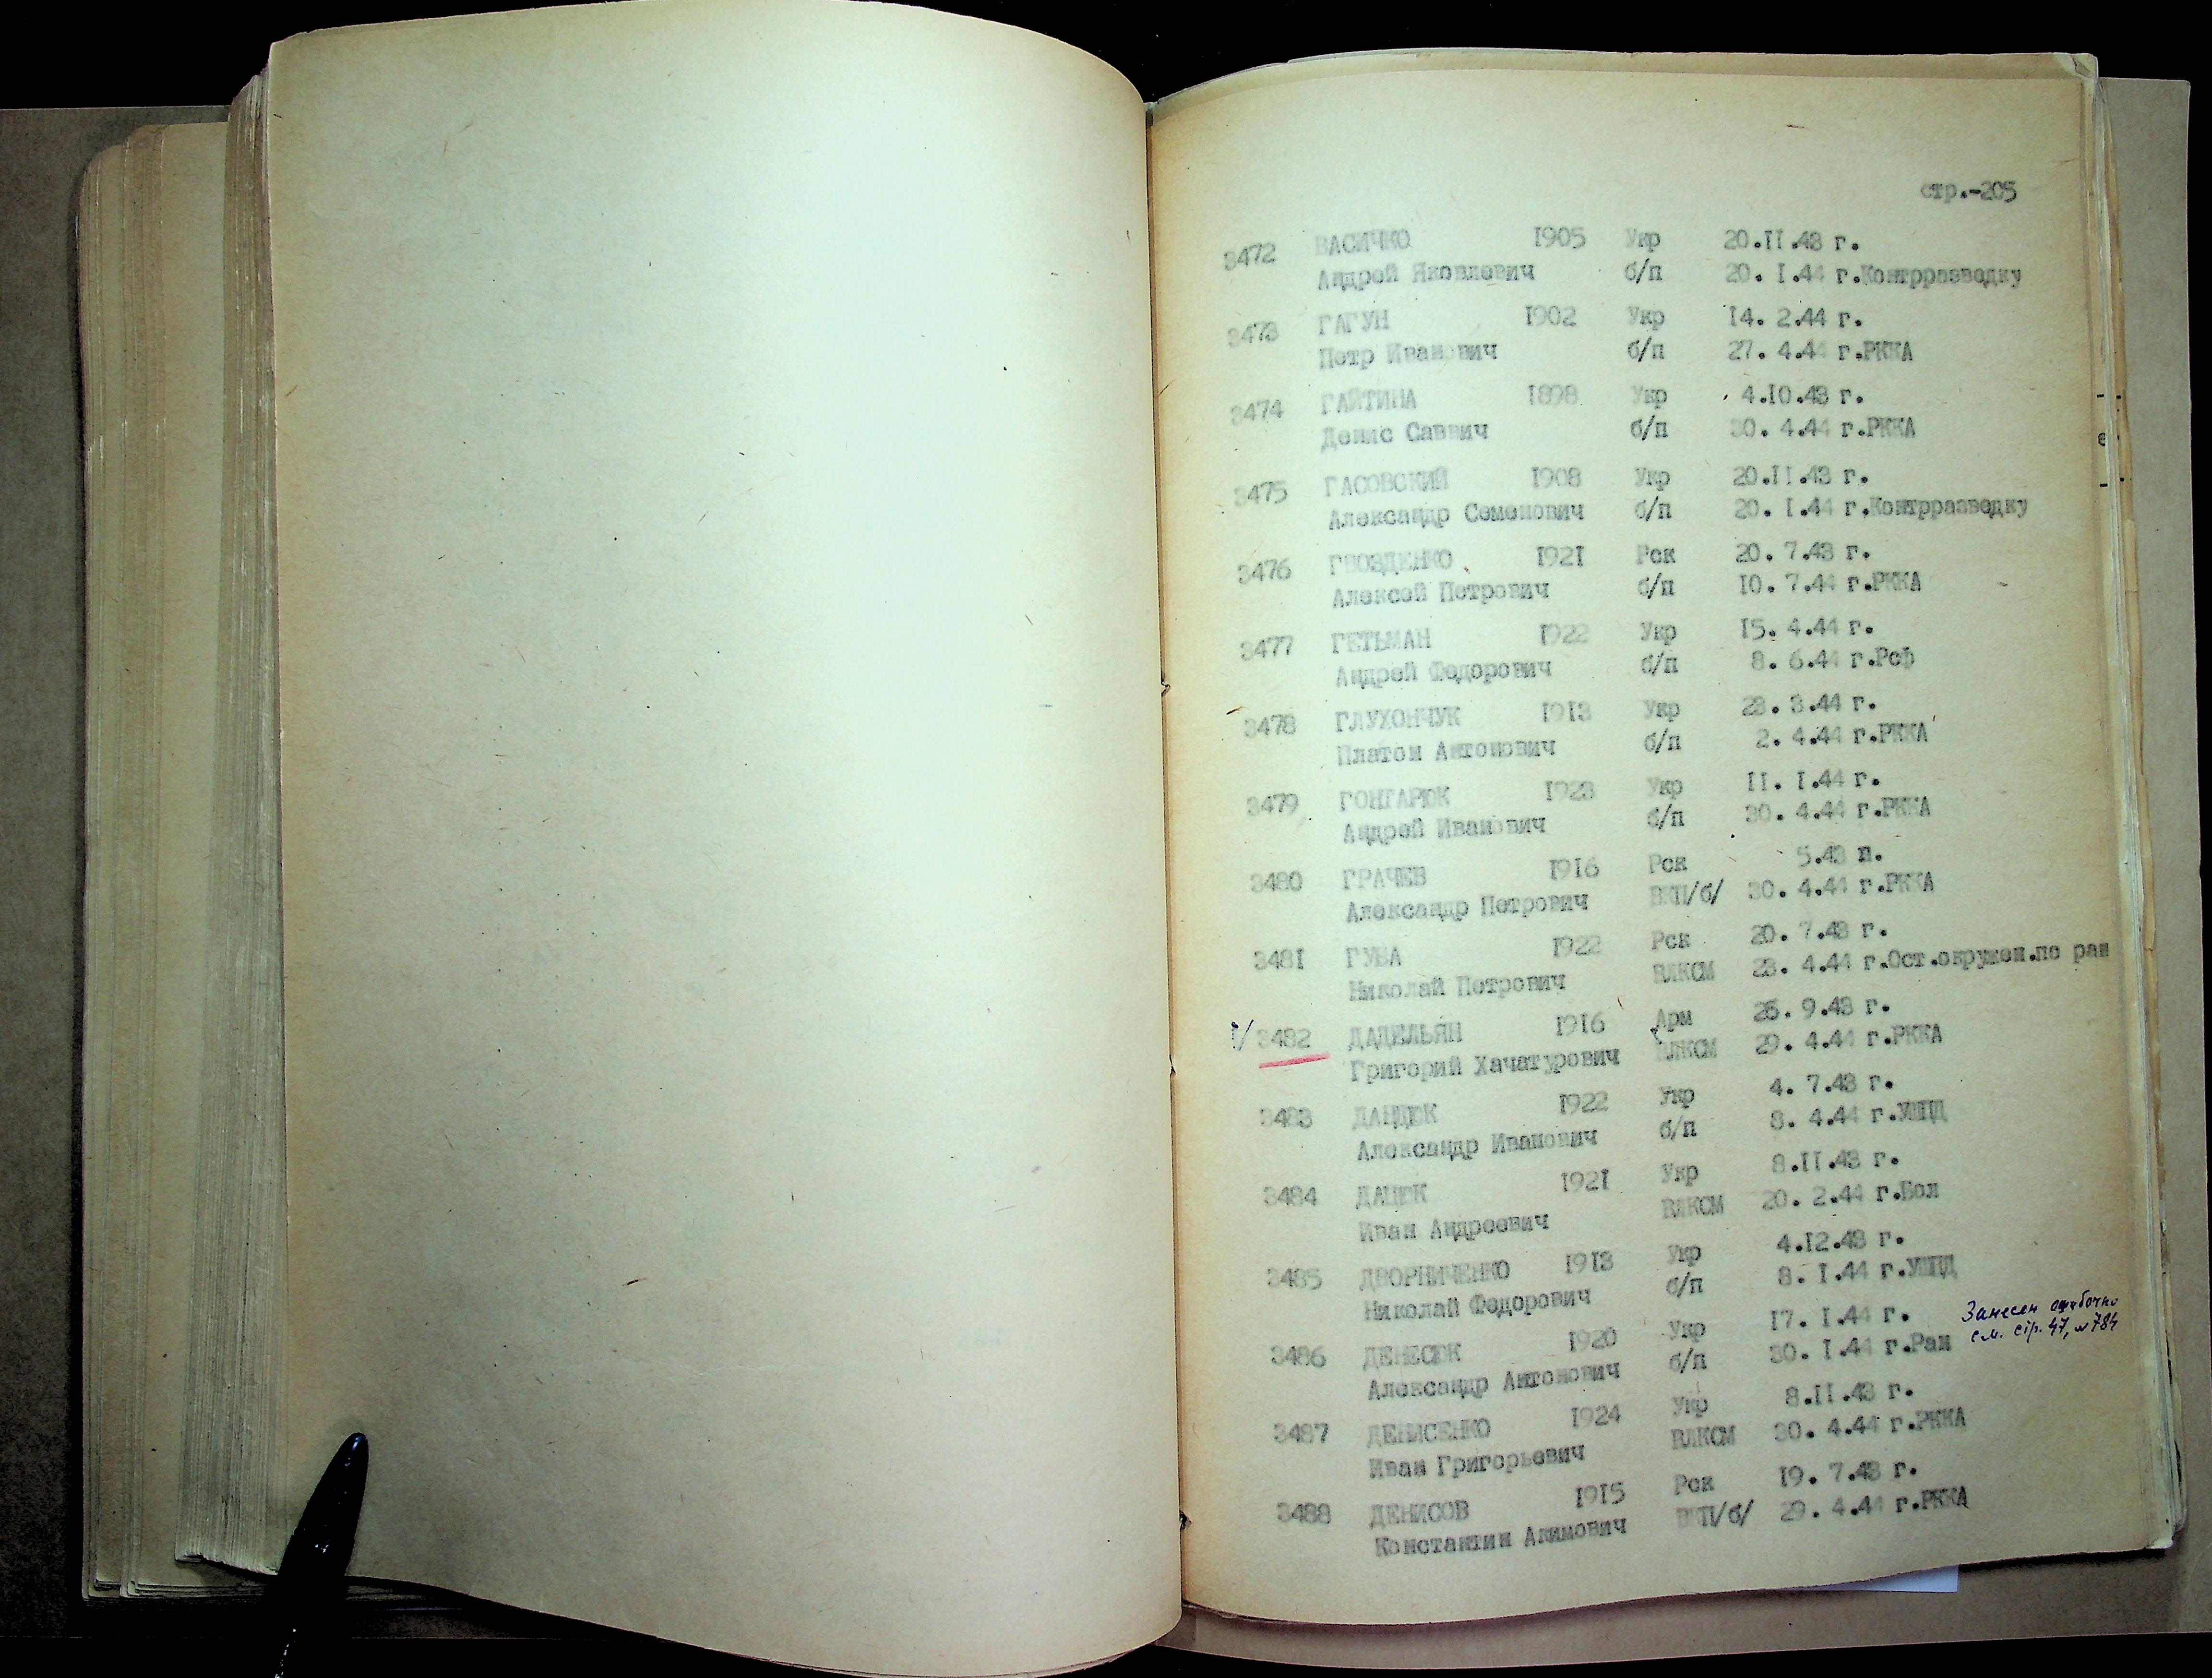 стр.-205
3472 ВАСИЧКО 1905 Укр 20.II.43 г.
Андрей Яковлевич б/п 20. I.44 г.Контрразведку
3473 ГАГУН 1902 Укр I4. 2.44 г.
Петр Иванович б/п 27. 4.44 г.РККА
3474 ГАЙТИНА 1898 Укр 4.I0.43 г.
Денис Саввич б/п 30. 4.44 г.РККА
3475 ГАСОВСКИЙ I908 Укр 20.II.43 г.
Александр Семенович б/п 20. I.44 г.Контрразведку
3476 ГВОЗДЕНКО I92I Рск 20. 7.43 г.
Алексей Петрович б/п I0. 7.44 г.РККА
3477 ГЕТЬМАН I922 Укр I5. 4.44 г.
Андрей Федорович б/п 8. 6.44 г.Рсф
3478 ГЛУХОНЧУК I9I3 Укр 23. 3.44 г.
Платон Антонович б/п 2. 4.44 г.РККА
3479 ГОНГАРЮК I923 Укр II. I.44 г.
Андрей Иванович б/п 30. 4.44 г.РККА
3480 ГРАЧЕВ I9I6 Рск 5.43 п.
Александр Петрович ВКП/б/ 30. 4.44 г.РККА
348I ГУБА I922 Рск 20. 7.43 г.
Николай Петрович ВЛКСМ 23. 4.44 г.Ост.окружен.по ран
3482 ДАДЕЛЬЯН I9I6 Арм 26. 9.43 г.
Григорий Хачатурович ВЛКСМ 29. 4.44 г.РККА
3483 ДАНДЮК I922 Укр 4. 7.43 г.
Александр Иванович б/п 8. 4.44 г.УШПД
3484 ДАЦЮК I92I Укр 8.II.43 г.
Иван Андреевич ВЛКСМ 20. 2.44 г.Бол
3485 ДВОРНИЧЕНКО I9I3 Укр 4.I2.43 г.
Николай Федорович б/п 8. I.44 г.УШПД
3486 ДЕНЕСЮК I920 Укр I7. I.44 г. Занесен ошибочно
Александр Антонович б/п 30. I.44 г.Ран см. стр. 47, № 784
3487 ДЕНИСЕНКО I924 Укр 8.II.43 г.
Иван Григорьевич ВЛКСМ 30. 4.44 г.РККА
3488 ДЕНИСОВ I9I5 Рск I9. 7.43 г.
Константин Акимович ВКП/б/ 29. 4.44 г.РККА